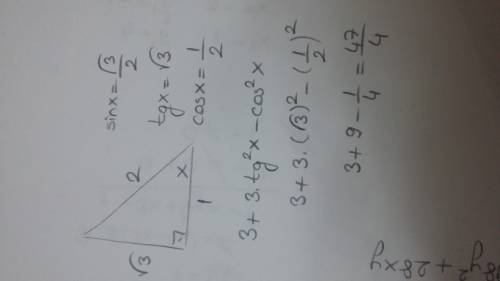 sinx = √3/2
tgx = √3
cosx = 1/2
√3
2
x
1
3 + 3.tg²x − cos²x
3 + 3.(√3)² − (1/2)²
3 + 9 − 1/4 = 47/4
y² + 28xy